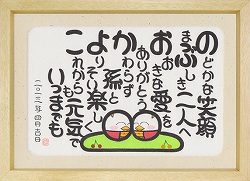 のどかな笑顔
まぶしき二人へ
おおきな愛を
ありがとう
かわらず
孫と
よりそい楽しく
これからも元気で
いつまでも
二〇一三年四月吉日